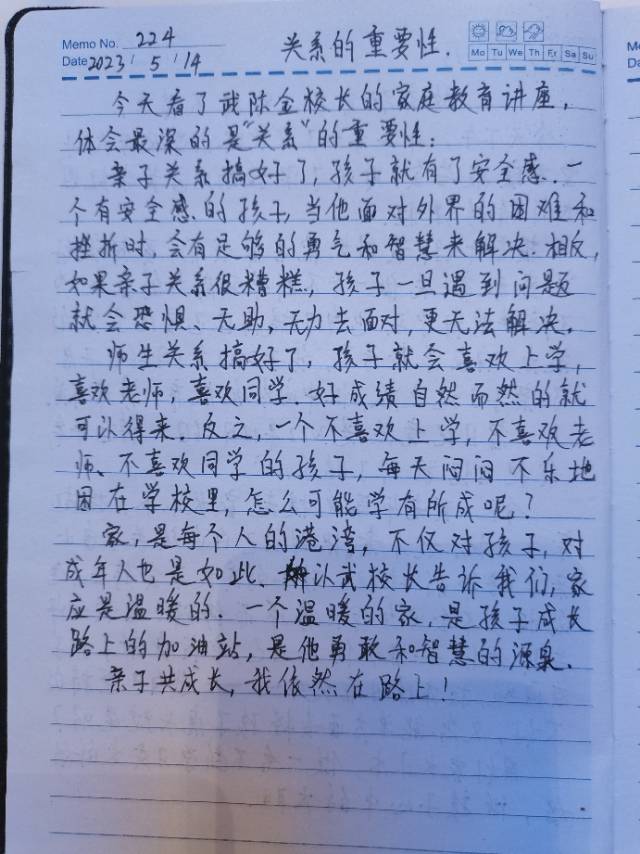 Memo No. 224
关系的重要性.
Mo Tu We Th Fr Sa Su
Date 2023 / 5 / 14
今天看了武陈金校长的家庭教育讲座,
体会最深的是“关系”的重要性:
亲子关系搞好了, 孩子就有了安全感. 一
个有安全感的孩子, 当他面对外界的困难和
挫折时, 会有足够的勇气和智慧来解决. 相反,
如果亲子关系很糟糕, 孩子一旦遇到问题
就会恐惧、无助, 无力去面对, 更无法解决.
师生关系搞好了, 孩子就会喜欢上学,
喜欢老师, 喜欢同学. 好成绩自然而然的就
可以得来. 反之, 一个不喜欢上学, 不喜欢老
师、不喜欢同学的孩子, 每天闷闷不乐地
困在学校里, 怎么可能学有所成呢?
家, 是每个人的港湾, 不仅对孩子, 对
成年人也是如此、所以武校长告诉我们, 家
应是温暖的. 一个温暖的家, 是孩子成长
路上的加油站, 是他勇敢和智慧的源泉.
亲子共成长, 我依然在路上!
M
Da